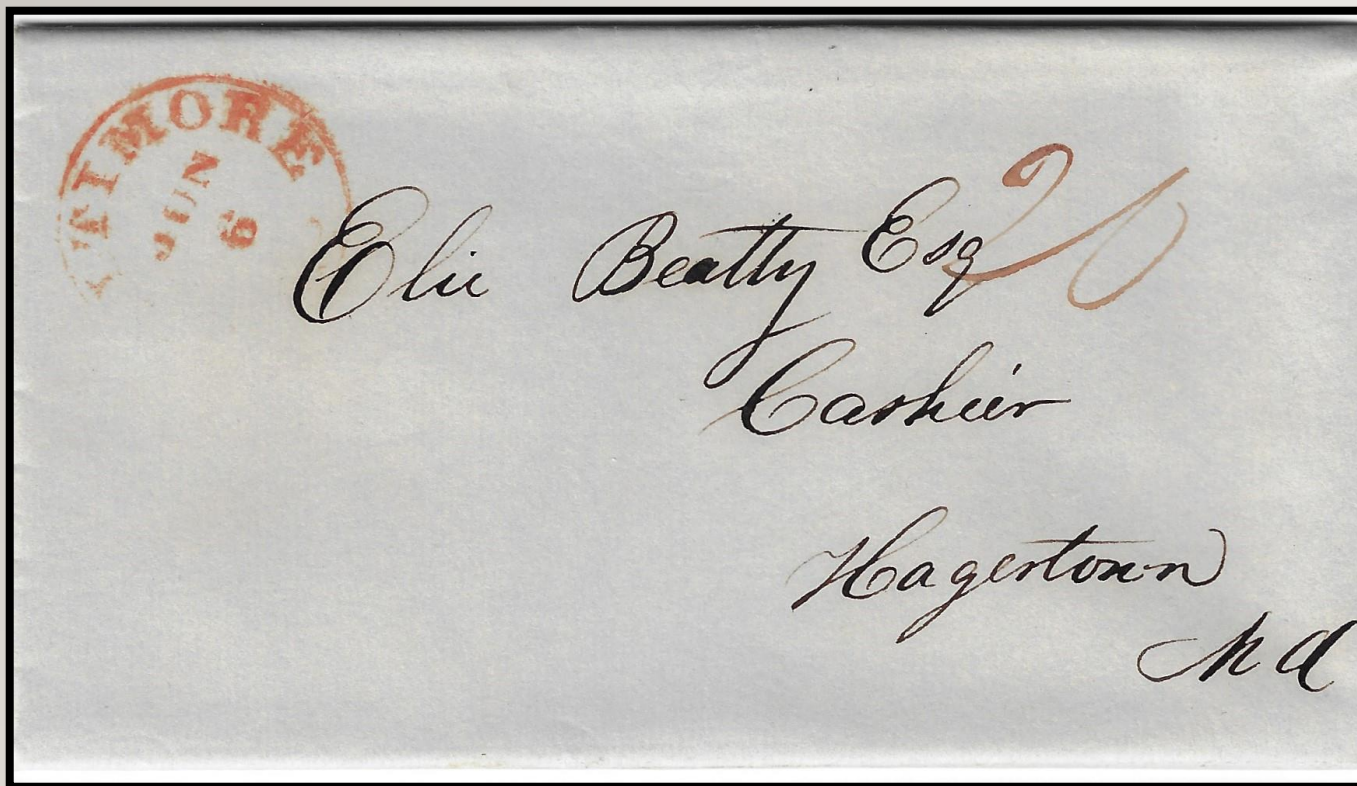 TIMORE
JUN
6
Elie Beatty Esq
20
Cashier
Hagerstown
Md